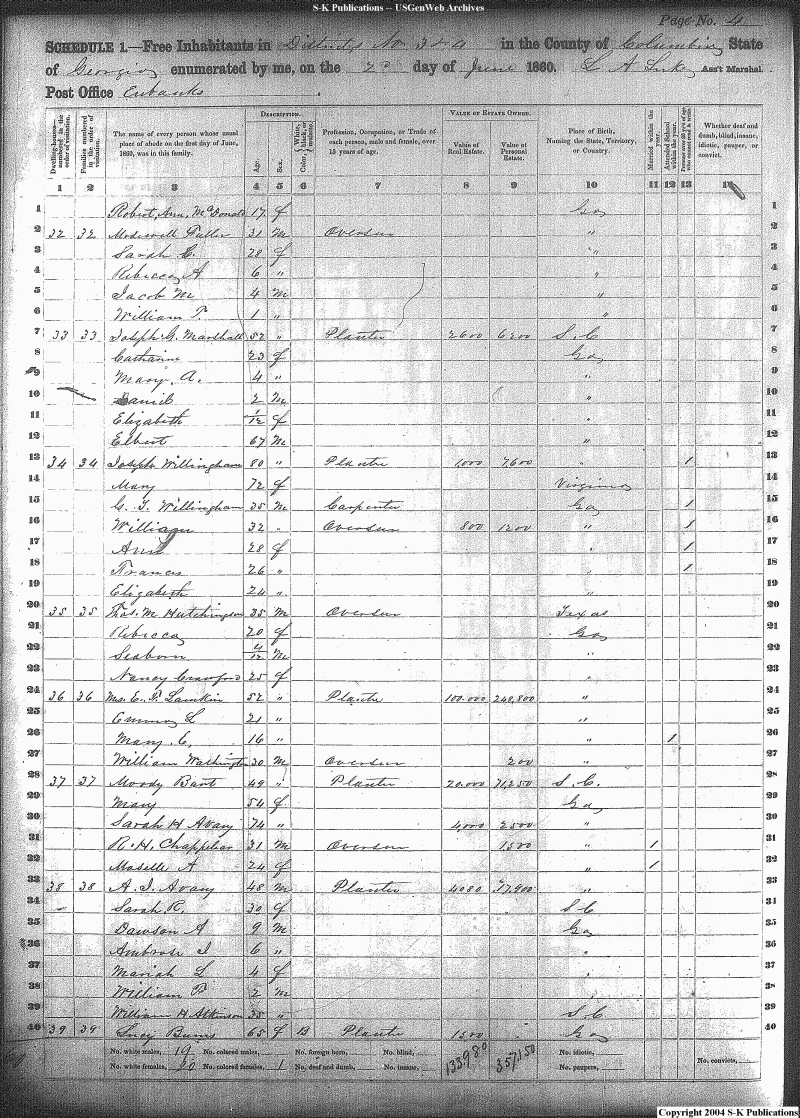 S-K Publications -- USGenWeb Archives
Page No. 4
SCHEDULE 1.—Free Inhabitants in Districts No 3 & 4 in the County of Columbia State
of Georgia enumerated by me, on the 2d day of June 1860. L A Luke Ass't Marshal.
Post Office Eubanks
Dwelling-houses—numbered in the order of visitation.
Families numbered in the order of visitation.
The name of every person whose usual place of abode on the first day of June, 1860, was in this family.
DESCRIPTION.
Age.
Sex.
Color, White, black, or mulatto.
Profession, Occupation, or Trade of each person, male and female, over 15 years of age.
VALUE OF ESTATE OWNED.
Value of Real Estate.
Value of Personal Estate.
Place of Birth, Naming the State, Territory, or Country.
Married within the year.
Attended School within the year.
Persons over 20 y'rs of age who cannot read & write.
Whether deaf and dumb, blind, insane, idiotic, pauper, or convict.
1 2 3 4 5 6 7 8 9 10 11 12 13 14
1 Robert, Ann, McDonald 17 f Ga 1
2 32 32 Fuller 31 M Overseer " 2
3 Sarah E. 28 f " 3
4 Rebecca A 6 " " 4
5 Jacob M 4 M " 5
6 William T. 1 " " 6
7 33 33 Joseph G. Marshall 52 " Planter 2600 6200 S. C 7
8 Catharine 23 f Ga 8
9 Mary. A. 4 " " 9
10 Daniel 2 M " 10
11 Elizabeth 1/12 f " 11
12 Elbert 67 M " 12
13 34 34 Joseph Willingham 80 " Planter 1,000 7,600 " 1 13
14 Mary 72 f Virginia 14
15 G. T. Willingham 35 M Carpenter Ga 1 15
16 William 32 " Overseer 800 1200 " 1 16
17 Ann 28 f " 1 17
18 Frances 26 " " 1 18
19 Elizabeth 24 " " 19
20 35 35 Thos. M Hutchingson 35 M Overseer Texas 20
21 Rebecca 20 f Ga 21
22 Seaborn 4/12 M " 22
23 Nancy Crawford 25 f " 23
24 36 36 Mrs. E. F. Lamkin 52 " Planter 100.000 248,800 " 24
25 Emma L 21 " " 25
26 Mary C. 16 " " 1 26
27 William Washington 30 M Overseer 200 " 27
28 37 37 Moody Burt 49 " Planter 20.000 71,250 S. C. 28
29 Mary 54 f Ga 29
30 Sarah H Avary 74 " 4,000 2500 " 30
31 R. H. Chappelear 31 M Overseer 1500 " 1 31
32 Moselle A 24 f " 1 32
33 38 38 A. J. Avary 48 M Planter 4080 17,900 " 33
34 Sarah R. 30 f S C 34
35 Dawson A 9 M Ga 35
36 Ambrose J 6 " " 36
37 Mariah L 4 f " 37
38 William F 2 M " 38
39 William H Atkinson 35 " S. C 39
40 39 39 Lucy Burns 65 f B Planter 1500 Ga 40
No. white males, 19 No. colored males, No. foreign born, No. blind, 133,980 357,150 No. idiotic, No. convicts,
No. white females, 20 No. colored females, 1 No. deaf and dumb, No. insane, No. paupers,
Copyright 2004 S-K Publications